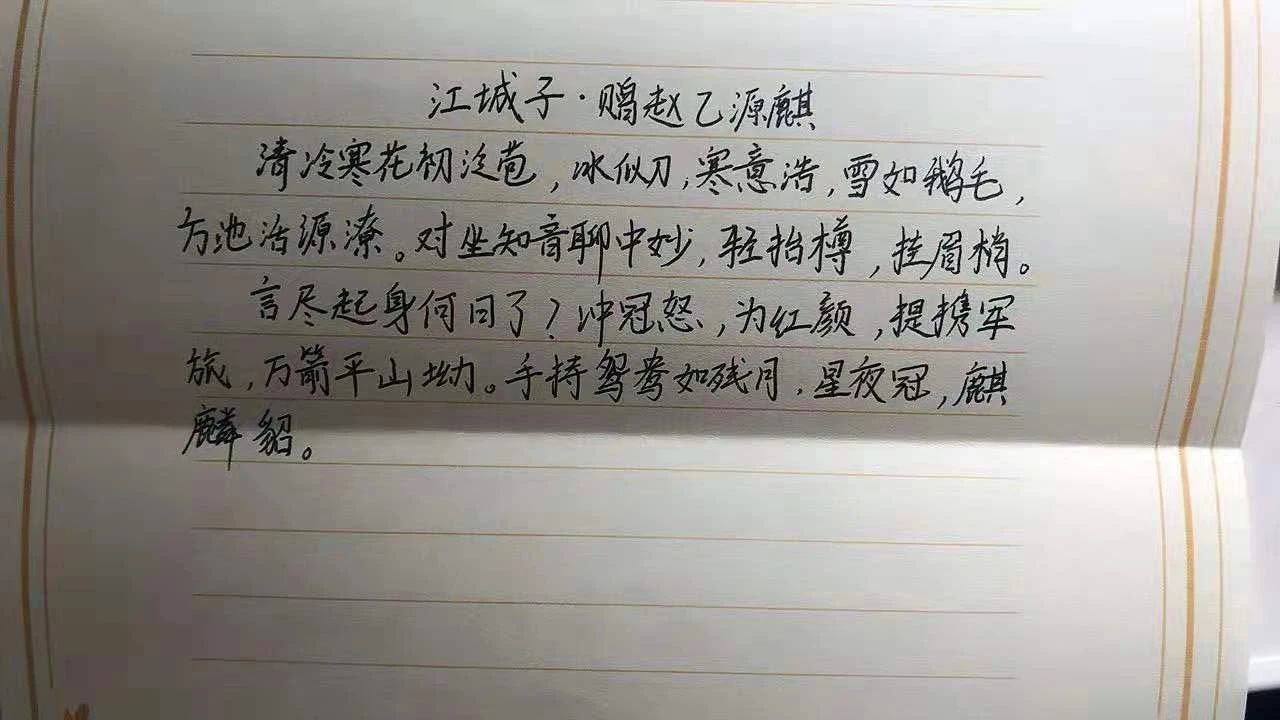 江城子·赠赵乙源麒
清冷寒花初泛苞，冰似刀，寒意浩，雪如鹅毛，
方池活源潦。对坐知音聊中妙，轻抬樽，挂眉梢。
言尽起身何日了？冲冠怒，为红颜，提携军
旅，万箭平山坳。手持鸳鸯如残月，星夜冠，麒
麟貂。